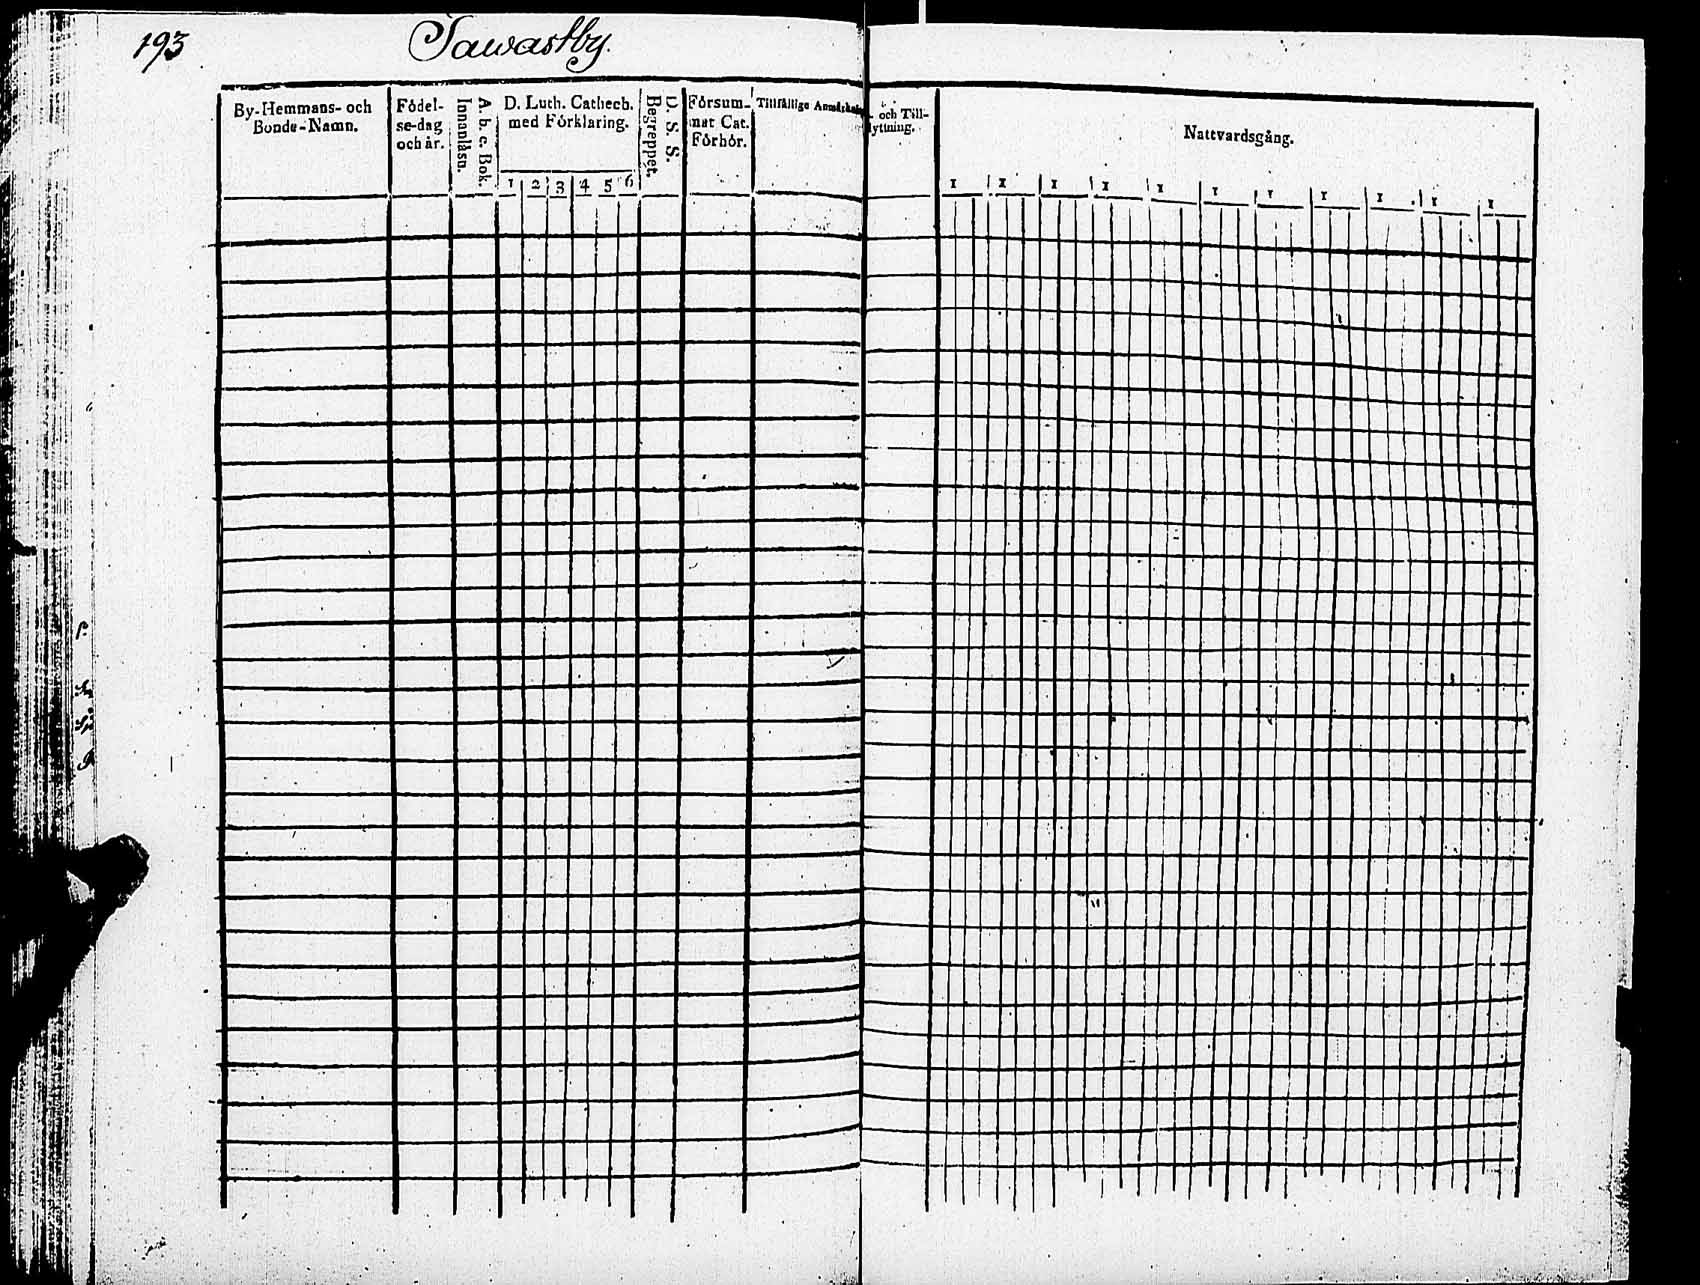 193
Tawastby.
By-Hemmans- och
Bonde-Namn.
Födel-
se-dag
och år.
Innanläsn.
A. b. c. Bok.
D. Luth. Cathech.
med Förklaring.
1 2 3 4 5 6
Begreppet.
D. S. S.
Försum-
mat Cat.
Förhör.
Tillfällige Anmärkn
och Till-
lyttning.
Nattvardsgång.
1 1 1 1 1 1 1 1 1 1 1